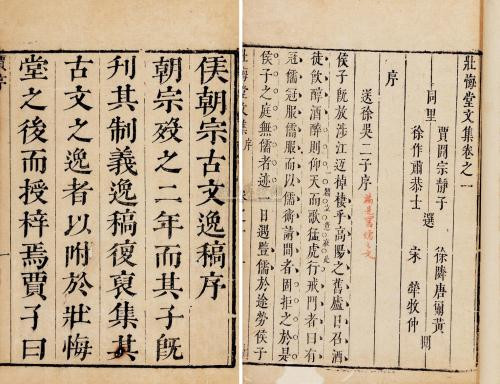 壯悔堂文集卷之一
賈開宗靜子 徐隣唐爾黃
同里 選 閱
徐作肅恭士 宋犖牧仲
序
送徐吳二子序
侯子既放涉江返棹棲乎高陽之舊廬日召酒
徒飲醇酒醉則仰天而歌猛虎行戒門者曰有
冠儒冠服儒服而以儒術請問者固拒之於是
侯子之庭無儒者迹一日遇豎儒於途勞侯子
壯悔堂文集 序
侯朝宗古文逸稿序
朝宗歿之二年而其子既
刊其制義逸稿復裒集其
古文之逸者以附於壯悔
堂之後而授梓焉賈子曰